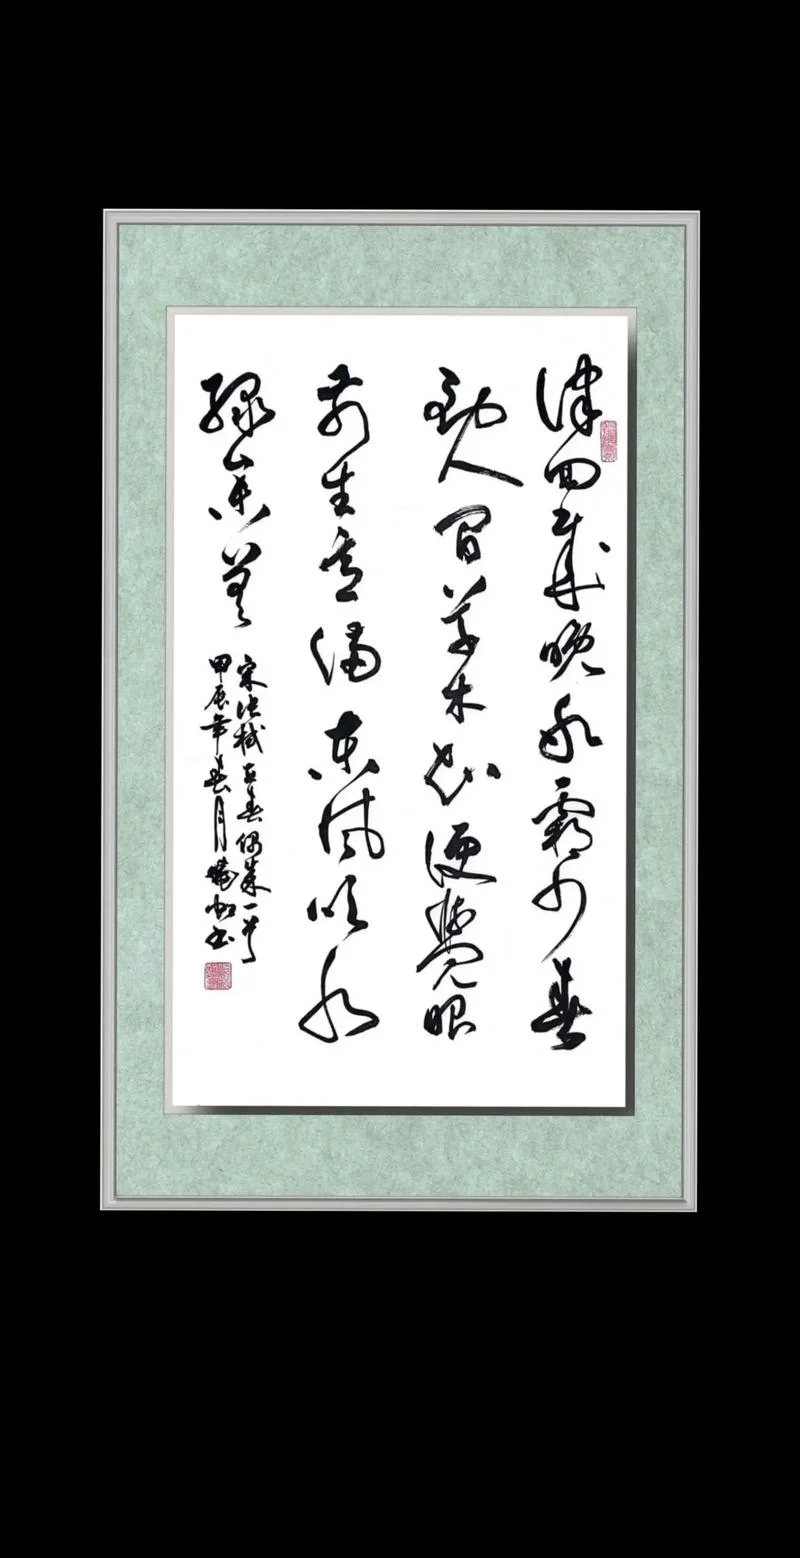 律回歲晚冰霜少春
到人间草木知便覺眼
前生意满东风吹水
绿参差
宋张栻立春偶成一首
甲辰年春月书